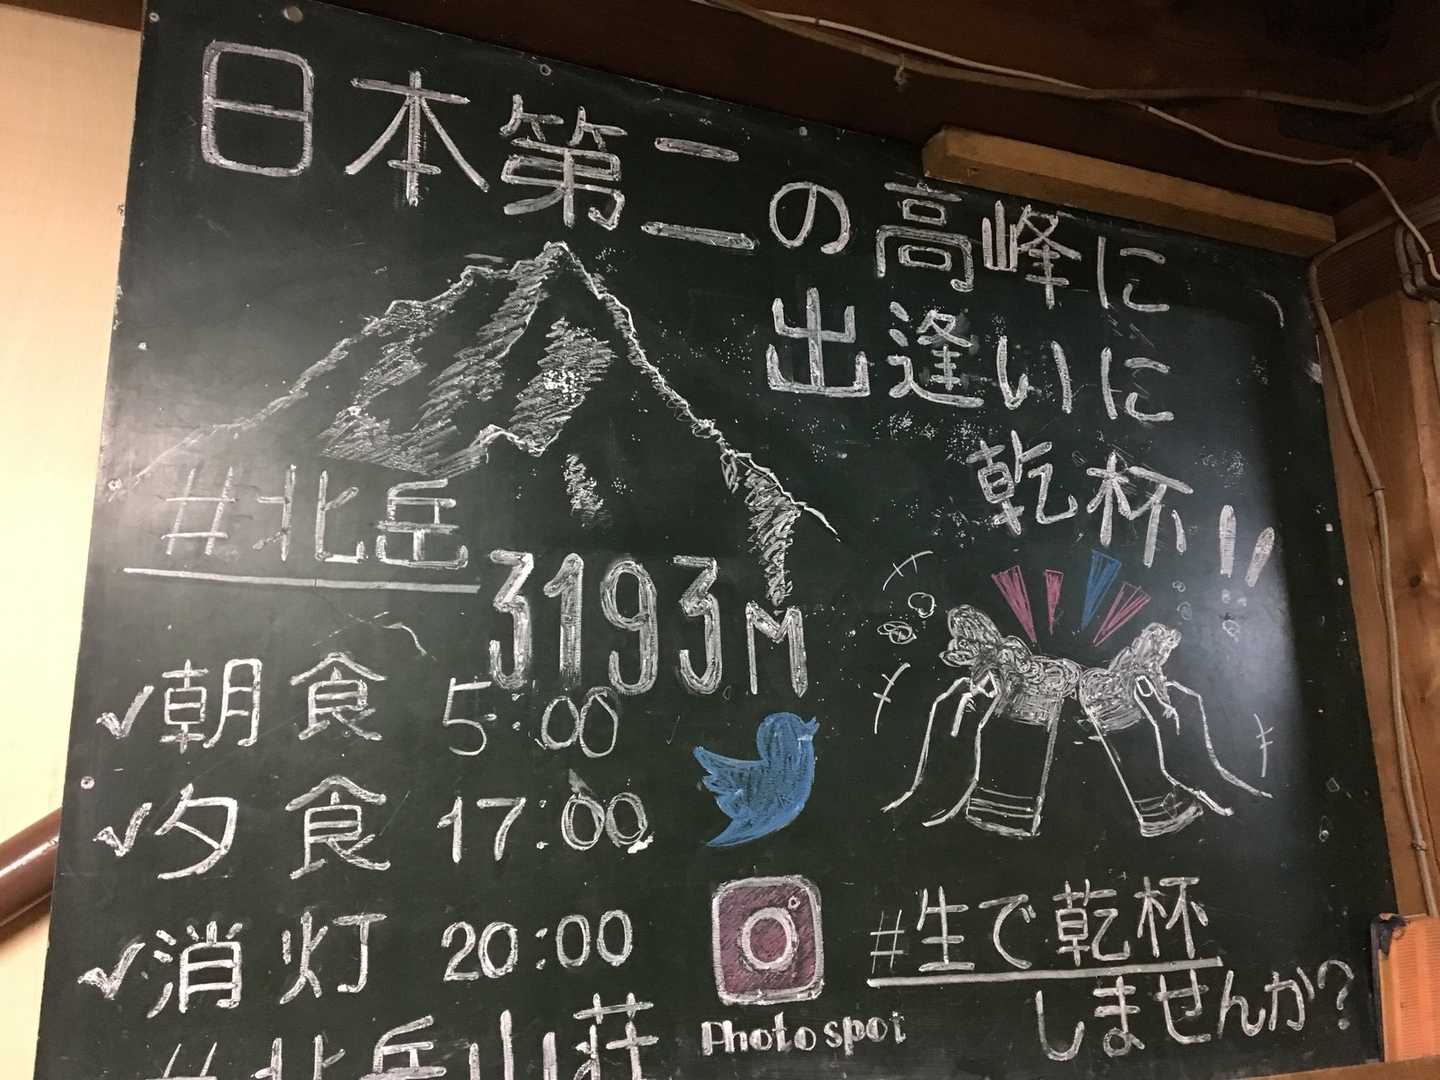 日本第二の高峰に
出逢いに
乾杯!!
#北岳
3193M
✓朝食 5:00
✓夕食 17:00
✓消灯 20:00
#北岳山荘
Photospot
#生で乾杯
しませんか?